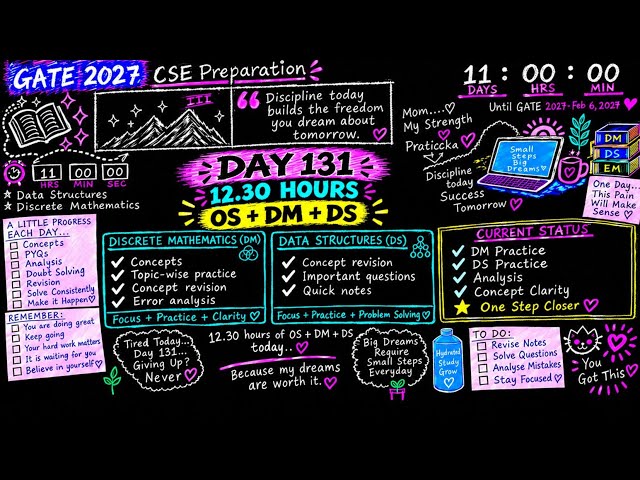 GATE 2027 CSE Preparation
11 : 00 : 00
DAYS HRS MIN
Until GATE 2027-Feb 6, 2027
III
“ Discipline today
builds the freedom
you dream about
tomorrow.
Mom....
My Strength
Praticcka
Discipline
today
Success
Tomorrow
Small
Steps
Big
Dreams
DM
DS
EM
One Day...
This Pain
Will Make
Sense
11 : 00 : 00
HRS MIN SEC
☆ Data Structures
☆ Discrete Mathematics
DAY 131
12.30 HOURS
OS + DM + DS
A LITTLE PROGRESS
EACH DAY...
Concepts
PYQs
Analysis
Doubt Solving
Revision
Solve Consistently
Make it Happen
REMEMBER:
You are doing great
Keep going
Your hard work matters
It is waiting for you
Believe in yourself
DISCRETE MATHEMATICS (DM)
✓ Concepts
✓ Topic-wise practice
✓ Concept revision
✓ Error analysis
Focus + Practice + Clarity
DATA STRUCTURES (DS)
✓ Concept revision
✓ Important questions
✓ Quick notes
Focus + Practice + Problem Solving
CURRENT STATUS
✓ DM Practice
✓ DS Practice
✓ Analysis
✓ Concept Clarity
★ One Step Closer
Tired Today...
Day 131...
Giving Up?
Never
12.30 hours of OS + DM + DS
today..
Because my dreams
are worth it.
Big Dreams
Require
Small Steps
Everyday
Hydrated
Study
Grow
TO DO:
Revise Notes
Solve Questions
Analyse Mistakes
Stay Focused
You
Got This